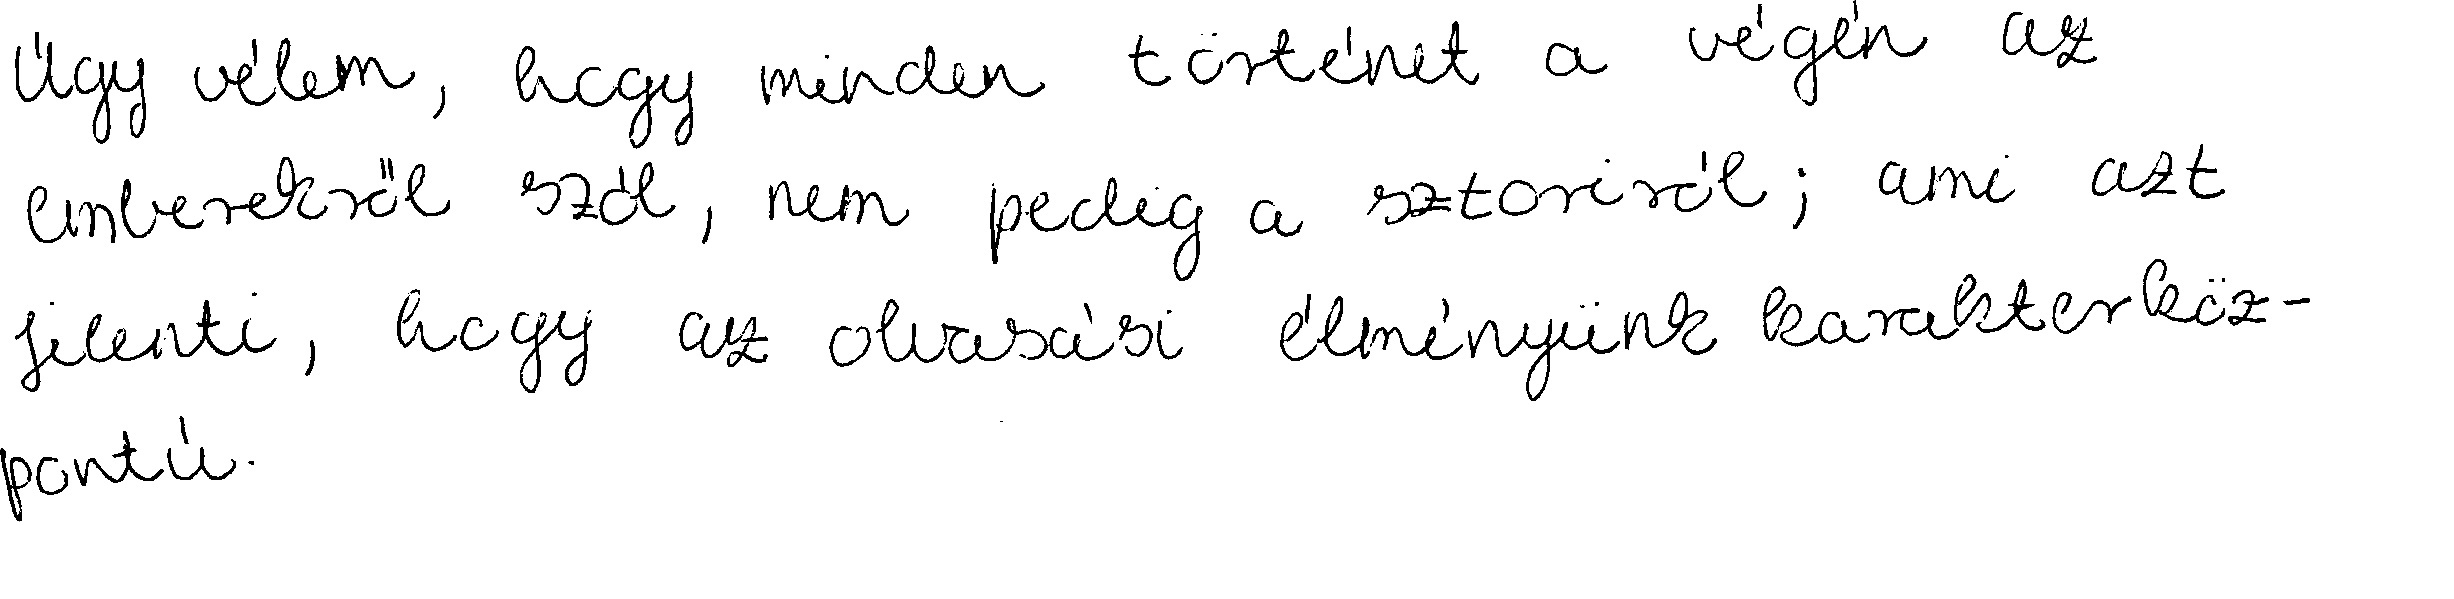 Úgy vélem, hogy minden történet a végén az
emberekről szól, nem pedig a sztoriról; ami azt
jelenti, hogy az olvasási élményünk karakterköz-
pontú.